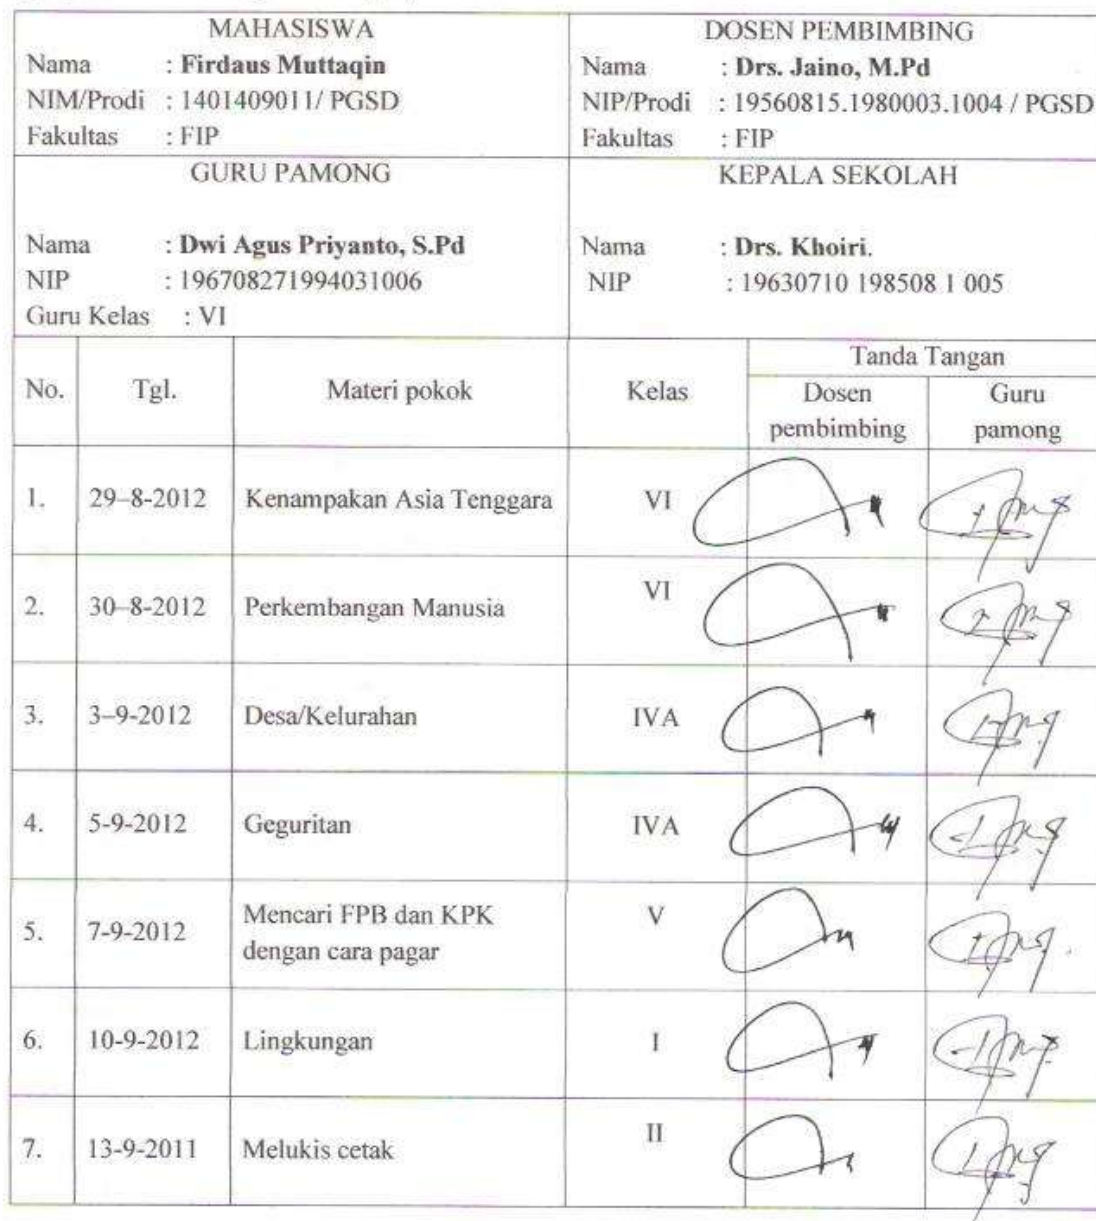 MAHASISWA
Nama : Firdaus Muttaqin
NIM/Prodi : 1401409011/ PGSD
Fakultas : FIP
DOSEN PEMBIMBING
Nama : Drs. Jaino, M.Pd
NIP/Prodi : 19560815.1980003.1004 / PGSD
Fakultas : FIP
GURU PAMONG
Nama : Dwi Agus Priyanto, S.Pd
NIP : 196708271994031006
Guru Kelas : VI
KEPALA SEKOLAH
Nama : Drs. Khoiri.
NIP : 19630710 198508 1 005
No. Tgl. Materi pokok Kelas Tanda Tangan
Dosen pembimbing Guru pamong
1. 29–8-2012 Kenampakan Asia Tenggara VI
2. 30–8-2012 Perkembangan Manusia VI
3. 3–9-2012 Desa/Kelurahan IVA
4. 5-9-2012 Geguritan IVA
5. 7-9-2012 Mencari FPB dan KPK V
dengan cara pagar
6. 10-9-2012 Lingkungan I
7. 13-9-2011 Melukis cetak II